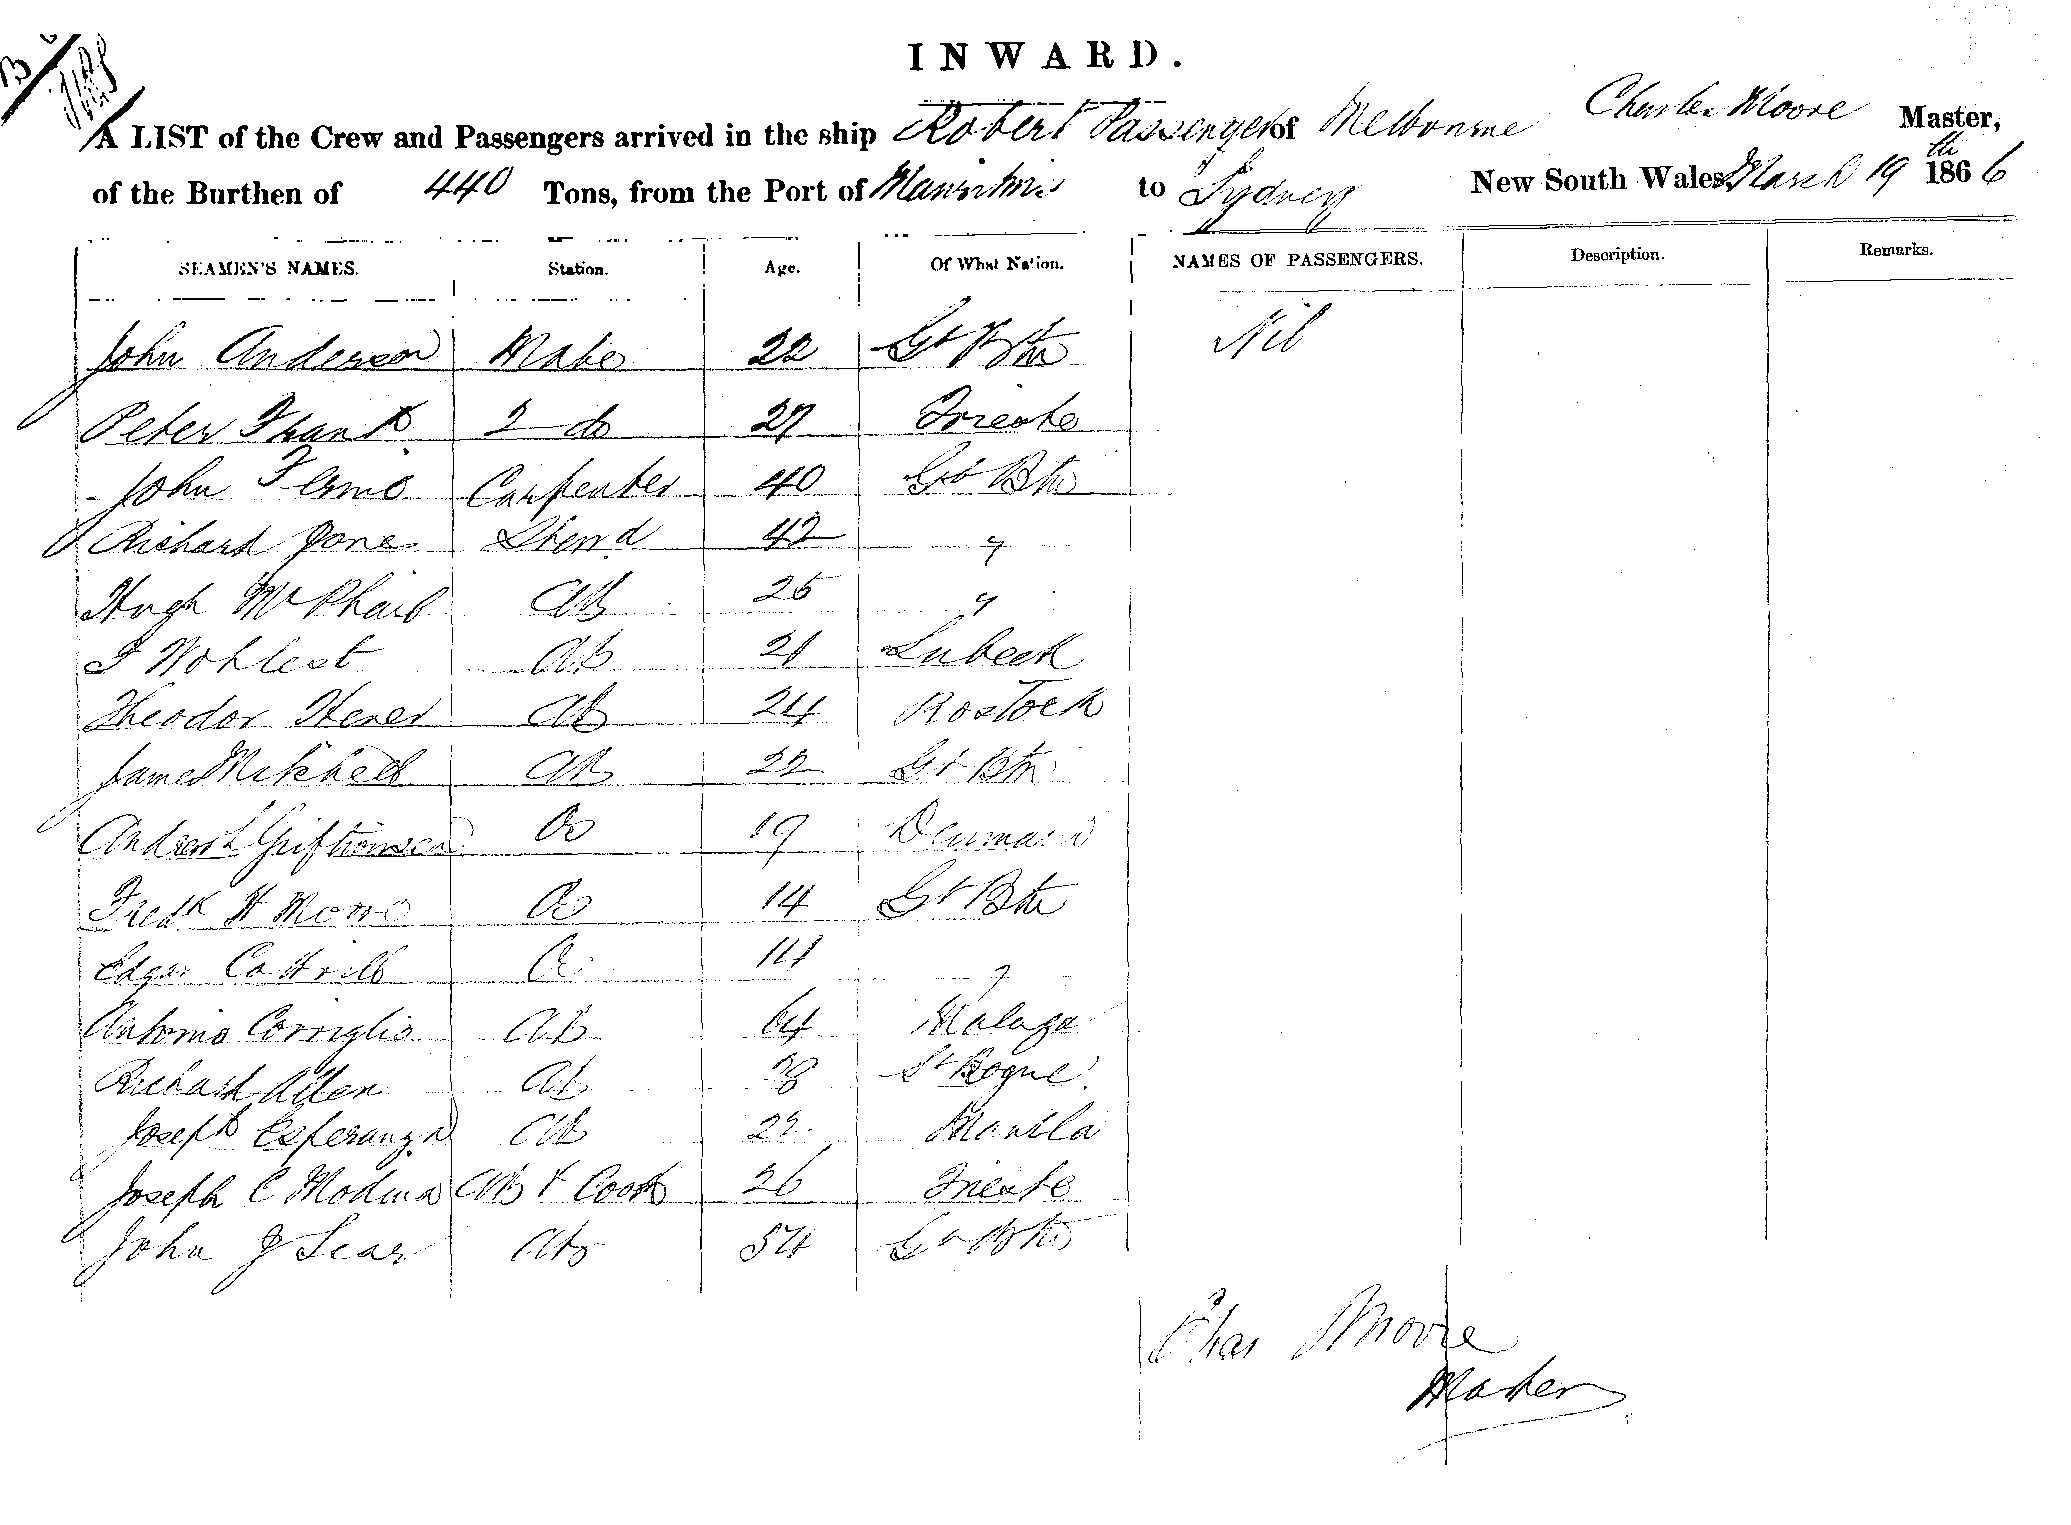 INWARD.
A LIST of the Crew and Passengers arrived in the ship Robert Passenger of Melbourne Charles Moore Master,
of the Burthen of 440 Tons, from the Port of Mauritius to Sydney New South Wales March 19th 1866
SEAMEN'S NAMES. Station. Age. Of What Nation. NAMES OF PASSENGERS. Description. Remarks.
John Anderson Mate 22 Gt Btn Nil
Peter Frank 2 do 27 Trieste
John 40 Carpenter Gt Btn
Richard Jones Stewd 42 "
Hugh McPhail AB 25 "
F Wohlest AB 21 Lubeck
Theodor Hener AB 24 Rostock
James Mitchell AB 22 Gt Btn
Andreas L OS 19 Denmark
Fredk H Moore OS 14 Gt Btn
Edgar Cottrell OS 14 "
Antonio Corriglio AB 64 Malaga
Richard Allen AB 28 St Rogue
Joseph Esperanza AB 22 Manila
Joseph C Modina AB & Cook 26 Trieste
John J Sear AB 54 Gt Btn
Chas Moore
Master